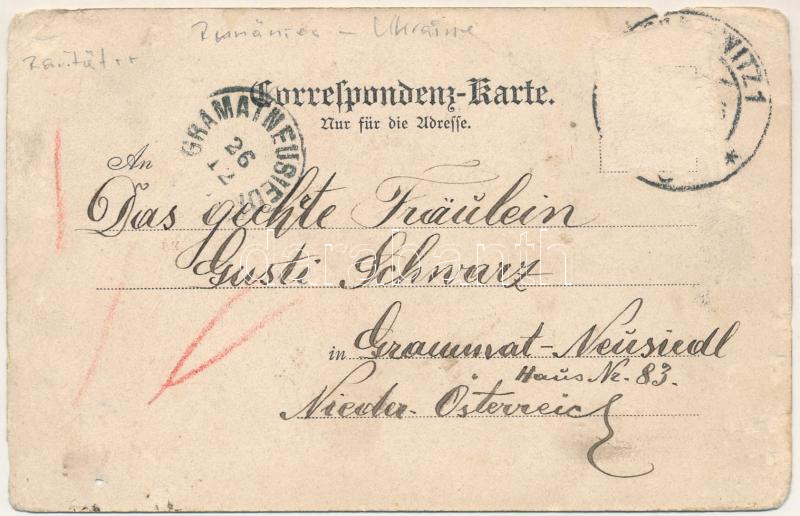 Rumänien - Ukraine
Correspondenz-Karte.
Nur für die Adresse.
GRAMATNEUSIED
26
12
WITZ 1
An
Das geehrte Fräulein
Gusti Schwarz
in Grammat-Neusiedl
Haus Nr. 83.
Nieder-Österreich
darabanth